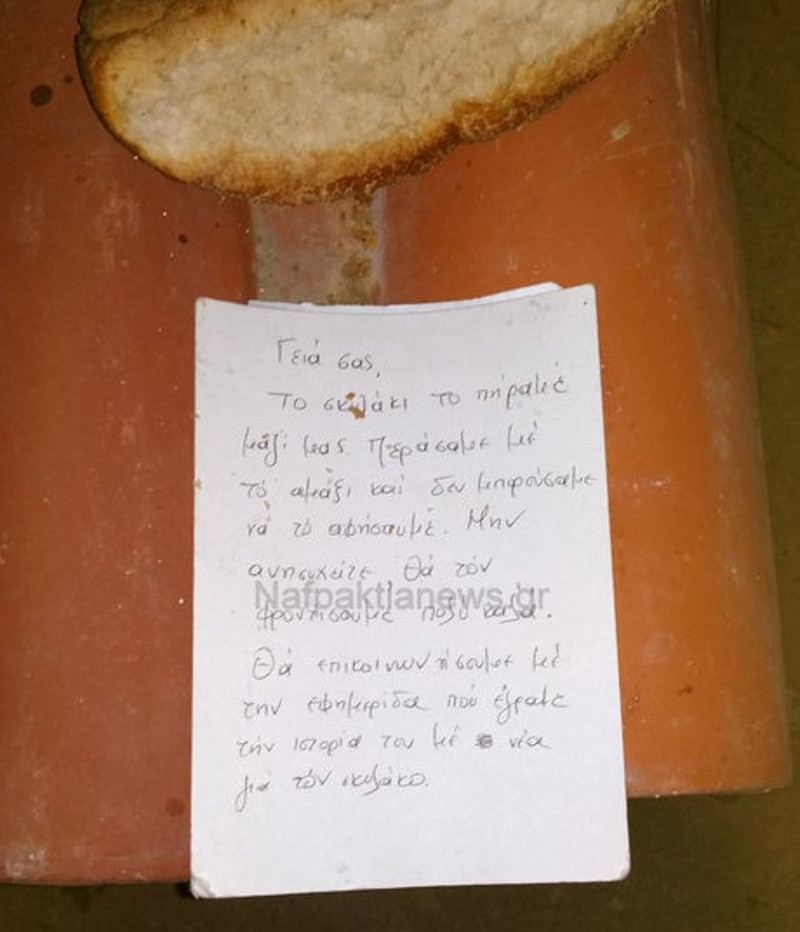 Γειά σας,
Το σκυλάκι το πήραμέ
μάζί μας Περάσαμε μέ
τό αμάξι καί δεν μπορούσαμε
νά τό αφήσουμέ. Μην
ανησυχείτε, θά τόν
Nafpaktianews.gr
φροντίσουμέ πολύ καλά.
Θά επικοινωνήσουμε μέ
την εφημερίδα πού έγραψε
τήν ιστορία του μέ νέα
γιά τόν σκυλάκο.